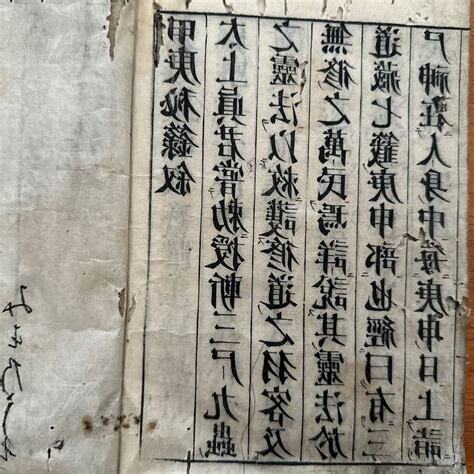 甲庚秘籙叙
太上眞君嘗勅授斬三尸九蟲
之靈法以救護修道之羽客及
無修之萬民焉詳說其靈法於
道藏七籤庚申部也經曰有三
尸神在人身中每庚申日上詣